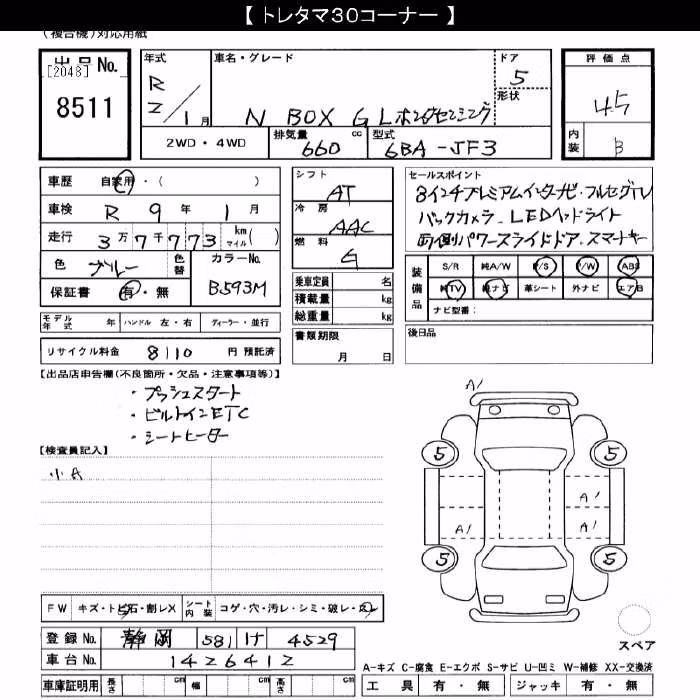 【 トレタマ30コーナー 】
(複合機)対応用紙
出品No. [2048] 8511
年式 R 2/1月
車名・グレード N BOX G L ホンダセンシング
ドア 5
形状
評価点 4.5
内装 B
2WD・4WD 排気量 660 cc 型式 6BA-JF3
車歴 自家用・( )
車検 R 9年 1月
走行 3万7千773 km マイル( )
色 ブルー 色替 カラーNo. B593M
保証書 有・無
シフト AT
冷房 AAC
燃料 G
乗車定員 名
積載量 kg
総重量 kg
セールスポイント
8インチプレミアムインターナビ・フルセグTV
バックカメラ・LEDヘッドライト
両側パワースライドドア・スマートキー
装備品 S/R 純A/W P/S P/W ABS
純TV 純ナビ 革シート 外ナビ エアB
ナビ型番:
モデル年式 年 ハンドル 左・右 ディーラー・並行
リサイクル料金 8110 円 預託済
書類期限 月 日
後日品
【出品店申告欄(不良箇所・欠品・注意事項等)】
・プッシュスタート
・ビルトインETC
・シートヒーター
【検査員記入】
小A
A1
5 5
A1
A1 A1
5 5
スペア
FW キズ・トビ石・割レX シート内装 コゲ・穴・汚レ・シミ・破レ・スレ
登録No. 静岡 581 け 4529
車台No. 1426412
車庫証明用 長さ cm 幅 cm 高さ cm
A-キズ C-腐食 E-エクボ S-サビ U-凹ミ W-補修 XX-交換済
工具 有・無 ジャッキ 有・無